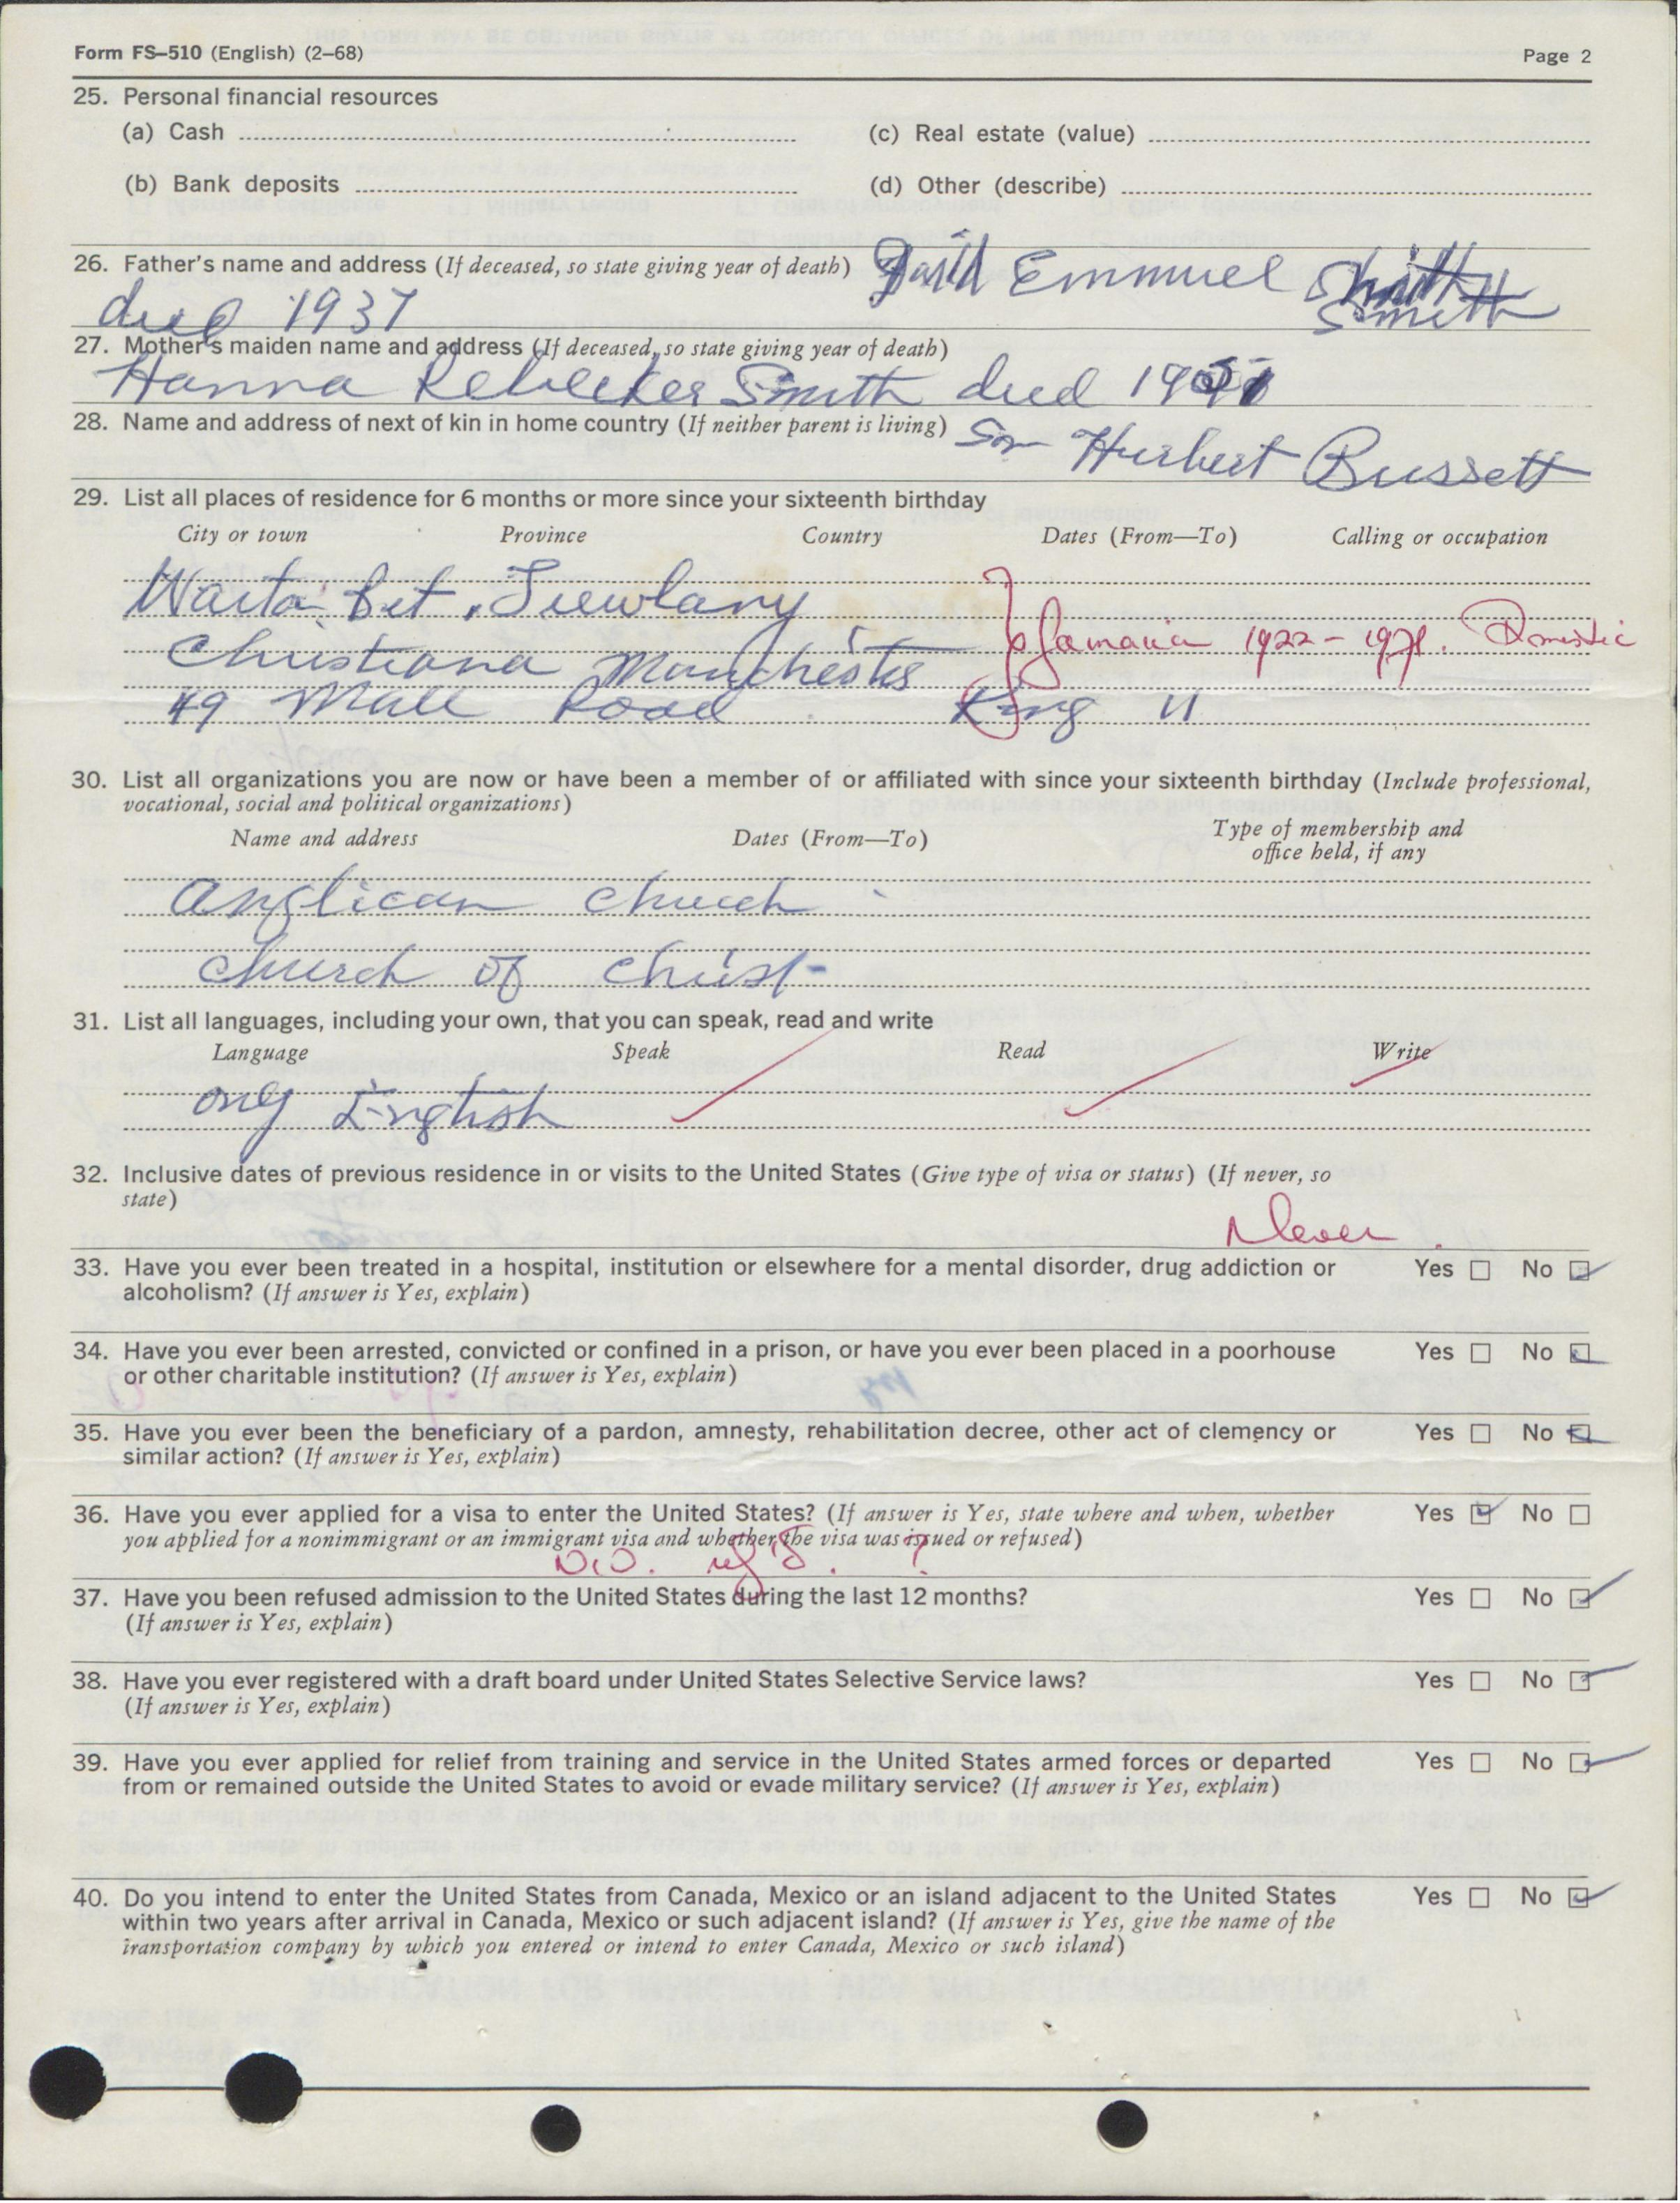 Form FS–510 (English) (2–68) Page 2
25. Personal financial resources
(a) Cash (c) Real estate (value)
(b) Bank deposits (d) Other (describe)
26. Father's name and address (If deceased, so state giving year of death) Emmuel Smith
died 1937
27. Mother's maiden name and address (If deceased, so state giving year of death)
Hanna Rebecker Smith died
28. Name and address of next of kin in home country (If neither parent is living) Son Hurbert Bussett
29. List all places of residence for 6 months or more since your sixteenth birthday
City or town Province Country Dates (From—To) Calling or occupation
Waita bit. Trewlany
Jamaica 1922 - 1971. Domestic
Christiana Manchester
49 Mall Road King 11
30. List all organizations you are now or have been a member of or affiliated with since your sixteenth birthday (Include professional,
vocational, social and political organizations)
Name and address Dates (From—To) Type of membership and
office held, if any
Anglican Church
Church of Christ
31. List all languages, including your own, that you can speak, read and write
Language Speak Read Write
only English
32. Inclusive dates of previous residence in or visits to the United States (Give type of visa or status) (If never, so
state)
Never.
33. Have you ever been treated in a hospital, institution or elsewhere for a mental disorder, drug addiction or Yes No
alcoholism? (If answer is Yes, explain)
34. Have you ever been arrested, convicted or confined in a prison, or have you ever been placed in a poorhouse Yes No
or other charitable institution? (If answer is Yes, explain)
35. Have you ever been the beneficiary of a pardon, amnesty, rehabilitation decree, other act of clemency or Yes No
similar action? (If answer is Yes, explain)
36. Have you ever applied for a visa to enter the United States? (If answer is Yes, state where and when, whether Yes No
you applied for a nonimmigrant or an immigrant visa and whether the visa was issued or refused)
37. Have you been refused admission to the United States during the last 12 months? Yes No
(If answer is Yes, explain)
38. Have you ever registered with a draft board under United States Selective Service laws? Yes No
(If answer is Yes, explain)
39. Have you ever applied for relief from training and service in the United States armed forces or departed Yes No
from or remained outside the United States to avoid or evade military service? (If answer is Yes, explain)
40. Do you intend to enter the United States from Canada, Mexico or an island adjacent to the United States Yes No
within two years after arrival in Canada, Mexico or such adjacent island? (If answer is Yes, give the name of the
transportation company by which you entered or intend to enter Canada, Mexico or such island)